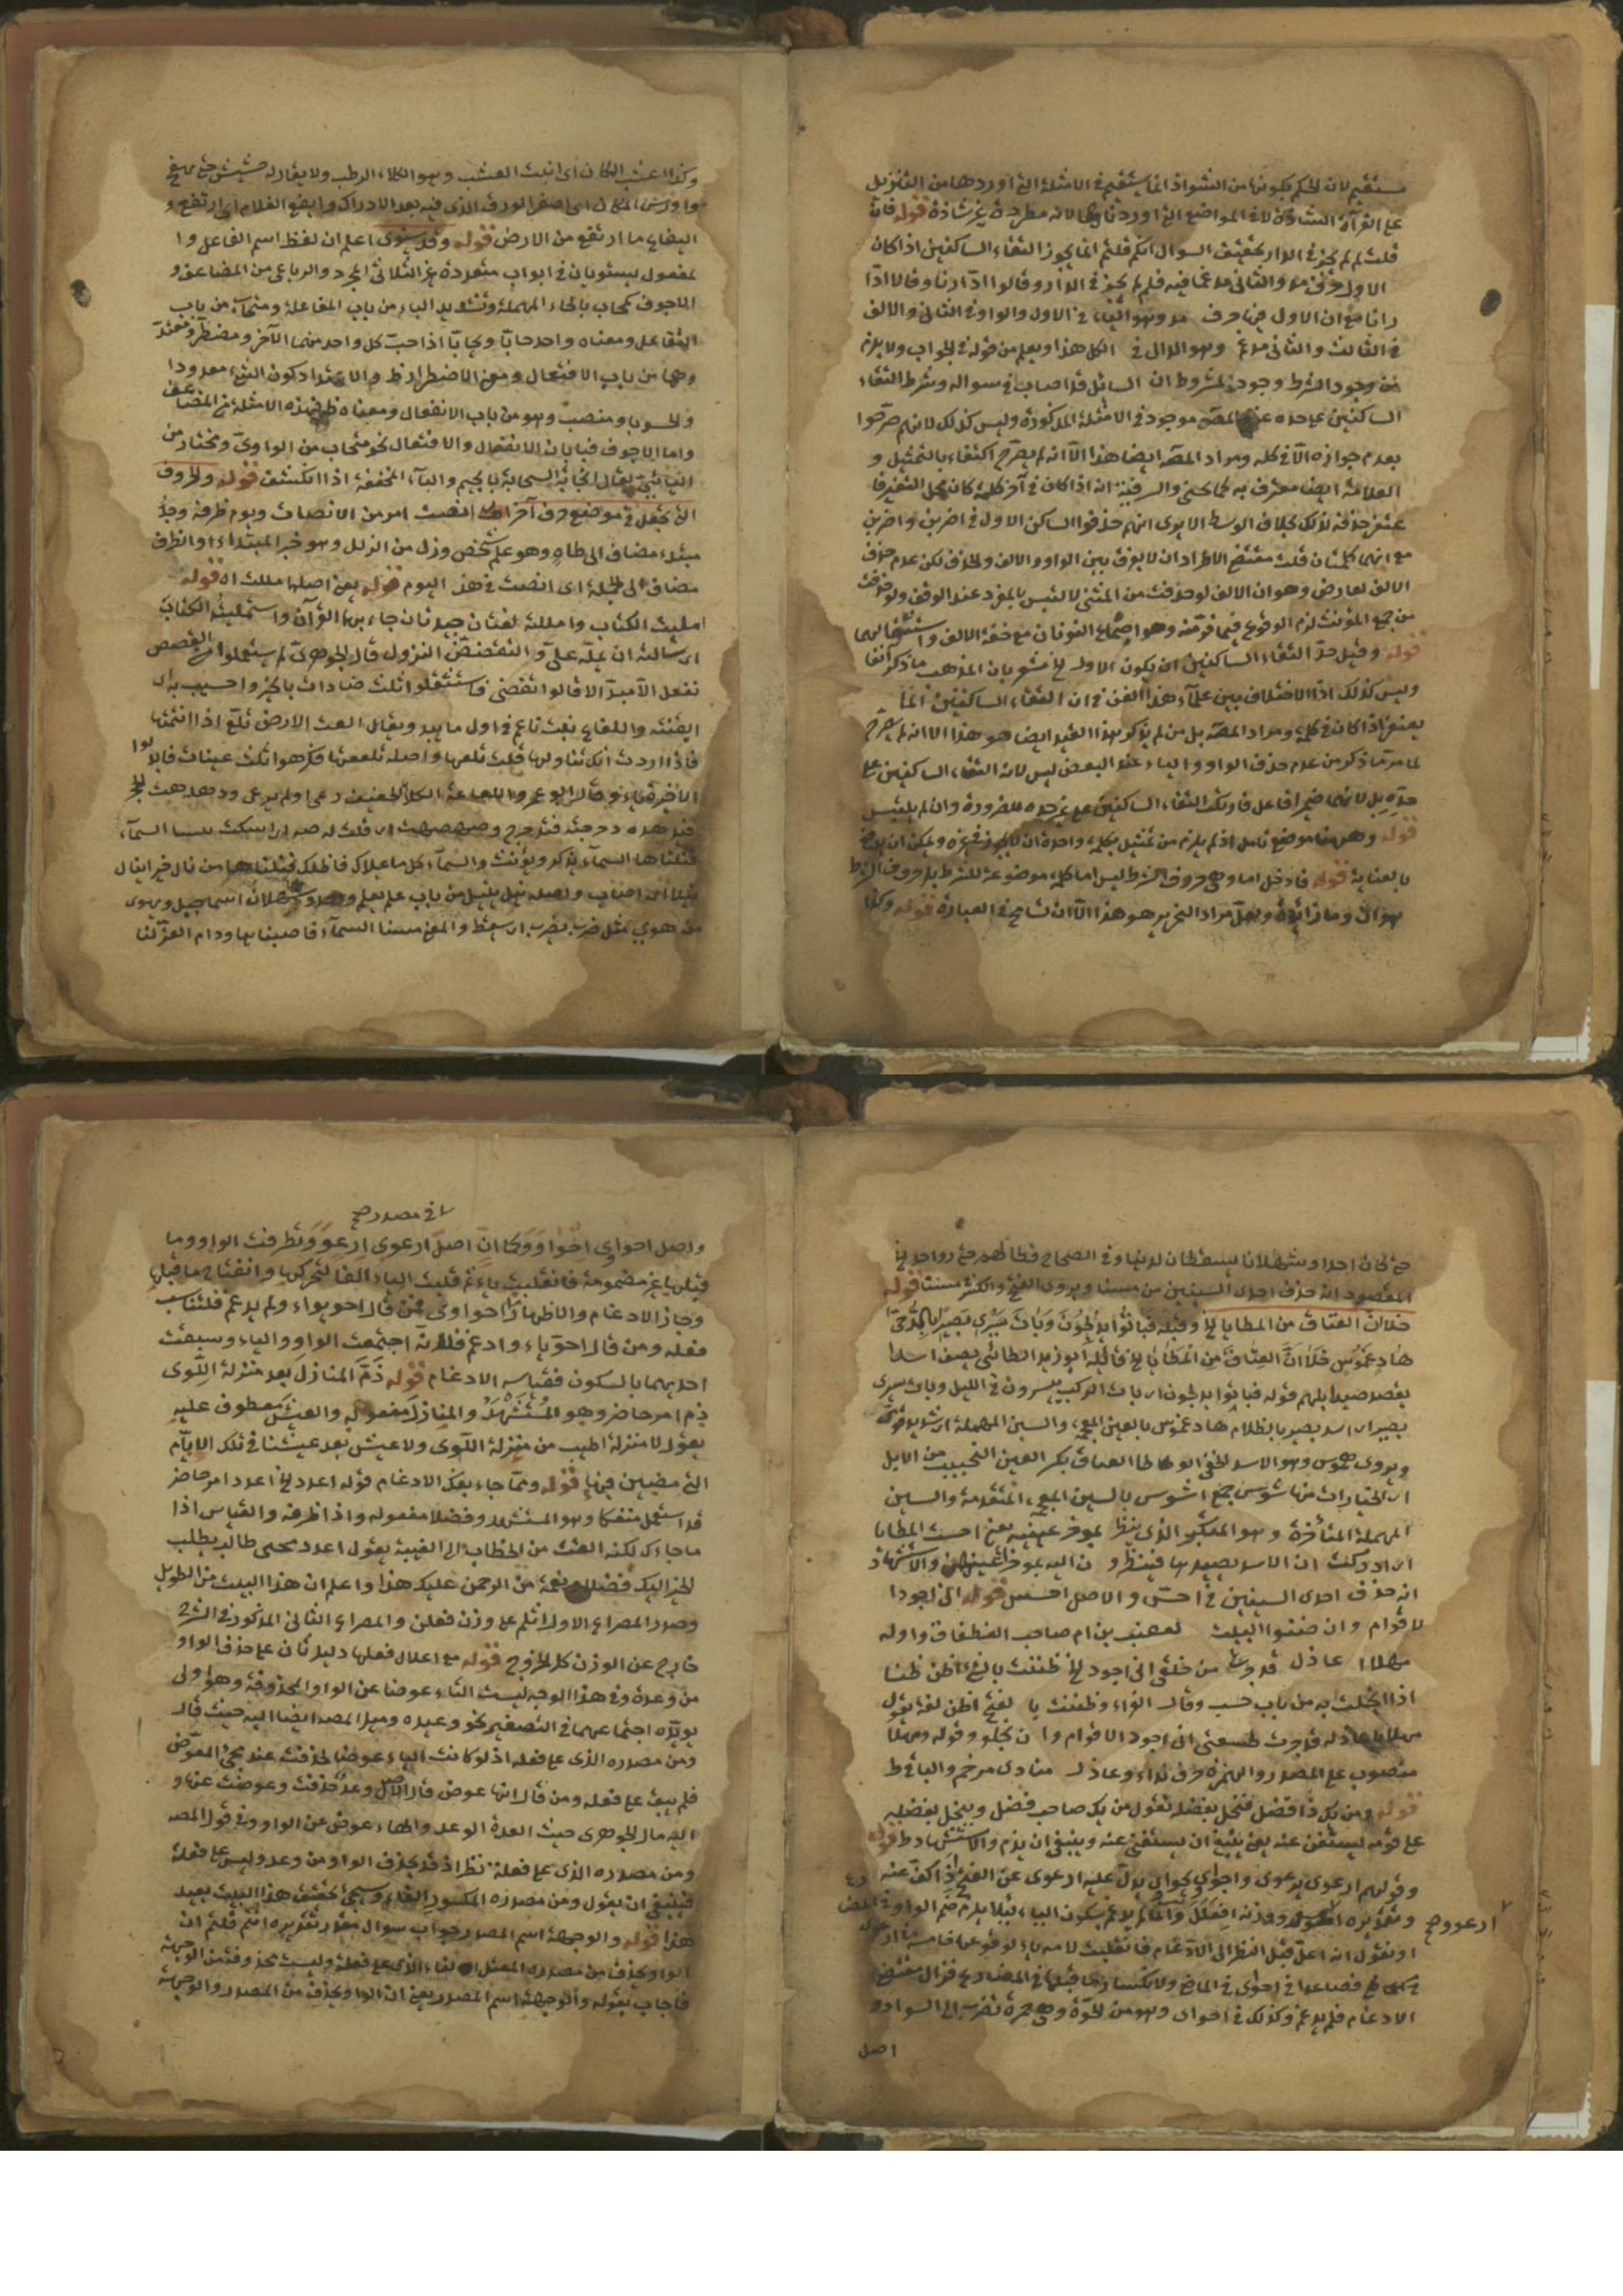 مستقيم لان الحكم بكونها من الشواذ انما يستقيم في الامثلة التي اوردها من التنزيل
على القرآة الشاذة لا في المواضع التي اوردناها لانه مطردة غير شاذة قوله فان
قلت لم لم يجز في الدار تحقيق السوال انكم قلتم انما يجوز التقاء الساكنين اذا كان
الاول حرف مد والثاني مدغما فيه فلم لم يجز في الدار وقالوا ادّارنا وقالا ادّا
رانا مع ان الاول حرف مد وهو الياء في الاول والواو في الثاني والالف
في الثالث والثاني مدغم وهو الدال في الكل هذا ويعلم من قوله في الجواب ولا يلزم
من وجود الشرط وجود المشروط ان السائل قد اصاب في سواله وشرط التقاء
الساكنين على حده عند المص موجود في الامثلة المذكورة وليس كذلك لانهم صرّحوا
بعدم جوازه الّا في كلمة ومراد المص ايضا هذا الّا انه لم يصرّح اكتفاء بالتمثيل و
العلامة ايضا معترف به
عنه حذفه لذلك بخلاف الوسط الا يرى انهم حذفوا الساكن الاول في اضربن واضربن
مع انهما كلمتان قلت مقتضى الاطراد ان لا يفرق بين الواو والالف والحذف لكن عدم حذف
الالف لعارض وهو ان الالف لو حذفت من المثنى لالتبس بالمفرد عند الوقف ولو حذفت
من جمع المؤنث لزم الوقوع فيما فرّ منه وهو اجتماع النونان مع خفة الالف واستثقالهما
قوله وقيل حدّ التقاء الساكنين ان يكون الاول الخ مشعر بان المذهب ما ذكر آنفا
وليس كذلك اذ لا اختلاف بين علماء هذا الفن في ان التقاء الساكنين انما
يعتبر اذا كان في كلمة ومراد المص بل من لم يذكر هذا القيد ايضا هو هذا الا انه لم يصرّح
لما مرّ ما ذكر من عدم حذف الواو والياء عند البعض ليس لانه التقاء الساكنين على
حدّه بل لانهما ضمير فاعل فارتكب التقاء الساكنين على غير حده للضرورة وان لم يلتبس
قوله وههنا موضع تامل اذ لم يلزم من تمثيل بكلمة واحدة ان لا يجوز في غيره ويمكن ان يدفع
بالعناية قوله فادخل اما وهي حروف الشرط ليس اما كلمة موضوعة للشرط بل حروف الشرط
هو ان وما زائدة ولعل مراد التحرير هو هذا الّا ان تسامح في العبارة قوله وكذا
وكذا اعشب المكان اى انبت العشب وهو الكلاء الرطب ولا يقال له حشيش حتى يهيج
واورس المكان اى اصفر الورق الذى فيه بعد الادراك وايفع الغلام اى ارتفع و
اليفاع ما ارتفع من الارض قوله وقد يستوى اعلم ان لفظ اسم الفاعل وا
لمفعول يستويان في ابواب متعددة غير الثلاثى المجرد والرباعى من المضاعف و
الاجوف كمحاب بالحاء المهملة وتشديد الباء من باب المفاعلة ومتحاب من باب
التفاعل ومعناه واحد حابّا وتحابّا اذا حبّ كل واحد منهما الآخر ومضطرّ ومعتدّ
وهما من باب الافتعال ومعنى الاضطرار ظ والاعتداد كون الشيء معدودا
ومنصب وهو من باب الانفعال ومعناه ظ في هذه الامثلة من المضاعف
واما الاجوف فبابان الانفعال والافتعال نحو منجاب من الواوىّ ومختار من
اليائىّ يقال انجابة السحابة بالجيم والباء المخففة اذا انكشف قوله والحروف
التى تجعل في موضع حرف آخر انصت امر من الانصات ويوم ظرفه وجدّ
مبتداء مضاف الى طاه وهو علم شخص وزل من الزلل وهو خبر المبتداء والظرف
مضاف الى الجملة اى انصت في هذا اليوم قوله يعنى اصلها مللت اه قوله
امليت الكتاب وامللته لغتان جيدتان جاء بهما القرآن واستمليته الكتاب
اى سالته ان يملّه علىّ والتقضض النزول قال الجوهرى لم يستعملوا من القصص
تفعل الّا مبدلا قالوا تقضى فاستثقلوا ثلث ضادات
الفتنة واللعاع نبت ناعم في اول ما يبدو ويقال العت الارض تلع اذا انبتتها
فاذا اردت انك تناولها قلت تلعيها واصله تلععتها فكرهوا ثلث عينات فابدلوا
الاخيرة ياء وقال ابو عمرو اللعاعة الكلاء الخفيف رعى اولم يرع ودهدهت الحجر
فتدهده دحرجته فتدحرج وصهصهت اى قلت له صه اى اسكت
فنلناها السمآء يذكر ويؤنث والسمآء كل ما علاك فاظلك فنلناها من نال خيرا ينال
نيلا اى اصاب واصله نيل ينيل من باب علم يعلم وثهلان اسما جبل ويهوى
من هوى مثل ضرب يضرب اى سقط والمعنى مسنا السمآء فاصبناها ودام العزّ لنا
حتى كان احدا وثهلانا يسقطان لدينا وفي الصحاح
المقصود انه حذف احدى السينين من مسنا ويروى الفتح والكسر مسنا قوله
خلا ان العتاق من المطايا الخ وقبله فَبَاتُوا يُدْلِجُونَ وَبَاتَ يَسْرِى بَصِيرٌ بِالدُّجَى
هَادٍ عَمُوسٌ خَلَا اَنَّ العِتَاقَ مِنَ المَطَايَا الخ قائله ابو زيد الطائى يصف اسدا
يقصد صيد ابلهم قوله فباتوا يدلجون اى بات الركب يسرون في الليل وبات يسرى
بصير اى اسد بصير بالظلام هاد عموس بالعين المعجمة والسين المهملة اى شديد قوىّ
ويروى هموس وهو الاسد الخفى الوطا العتاق بكسر العين النجيبات من الابل
اى الخيارات منها شوس جمع اشوس بالشين المعجمة المتقدمة والسين
المهملة المتأخرة وهو المتكبر الذى ينظر بموخر عينيه يعنى احست المطايا
اى ادركت ان الاسد يصيدها فينظرون اليه بموخر اعينهن والاستشهاد
انه حذف احدى السينين في احسّ والاصل احسس قوله انى اجود ا
لاقوام وان ضننوا البيت لقعنب بن ام صاحب الغطفانى واوله
مهلا اعاذل قد جربت من خلقى انى اجود الخ ظننت بالشيء اظن ظنا
اذا بخلت به من باب حسب وقال الفراء وظننت يا لفتح اظن لغة يقول
مهلا يا عاذلة قد جربت طبيعتى انى اجود الاقوام وان بخلو وقوله ومهلا
منصوب على المصدر والهمزة حرف نداء وعاذل منادى مرخم والباقى ظ
قوله ومن يك ذا فضل فيبخل بفضله تقول من يك صاحب فضل ويبخل بفضله
على قومه يستغن عنه يعنى ينبغى ان يستغنى عنه وينبغى ان يذم والاستشهاد ظ قوله
وقولهم ارعوى يرعوى واجواى يجواى يدل عليه ارعوى عن القبيح اذا كفّ عنه
وتقديره ووزنه افعلل وانما لم يدغم بسكون الياء لئلا يلزم ضم الواو في المض
ارعوو صح
او نقول انه اعلّ قبل النظر الى الادغام فانقلبت لامه ياء لوقوعها خامسة
فصاعدا في احوى في الماضى ولانكسار ما قبلها في المضارع فزال مقتضى
الادغام فلم يدغم وكذلك في احواى وهو من الحوّة وهى حمرة تضرب الى السواد و
اصل
ا في مصدر صح
واصل احواوى احواوو وكما ان اصل ارعوى ارعوو وتطرفت الواو وما
قبلها غير مضمومة فانقلبت ياء ثم قلبت الياء الفا لتحركها وانفتاح ما قبلها
وجاز الادغام والاظهار في احواوى فمن قال احويواء ولم يدغم فلتناسب
فعله ومن قال احويّاء وادغم فلانه اجتمعت الواو والياء وسبقت
احديهما بالسكون فقياسه الادغام قوله ذُمَّ المنازلَ بعد منزلة اللّوى
ذم امر حاضر وهو المُسْتَشْهَدُ والمنازل مفعوله والعيش معطوف عليه
يقول لا منزلة اطيب من منزلة اللوى ولا عيش بعد عيشنا في تلك الايّام
التى مضين فيها قوله ومما جاء بفكّ الادغام قوله اعدد الخ اعدد امر حاضر
قد استعمل منفكا وهو المستشهد وفضلا مفعوله واذا ظرفه والقياس اذا
ما جاءك لكنه التفت من الخطاب الى الغيبة يقول اعدد لمن جاءك طالب يطلب
الخير اليك فضلا ونعمة من الرحمن عليك هذا واعلم ان هذا البيت من الطويل
وصدر المصراع الاول اثلم على وزن فعلن والمصراع الثانى المذكور في الشرح
خارج عن الوزن كل الخروج قوله مع اعلال فعلها دليل ثان على حذف الواو
من وعدة وفي هذا الوجه ليست التاء عوضا عن الواو المحذوفة وهو اولى
يويّده اجتماعهما في التصغير نحو وعيده وميل المصد ايضا اليه حيث قال
ومن مصدره الذى على فعلة اذ لو كانت الهاء عوضا لحذفت عند مجئ المعوّض
فلم يبق على فعلة ومن قال انها عوض قال الاصل وعد حذفت وعوضت عنها و
اليه مال الجوهرى حيث العدة الوعد والهاء عوض عن الواو وفي قول المصد
ومن مصدره الذى على فعلة نظر اذ قد يحذف الواو من وعد وليس على فعلة
فينبغى ان يقول ومن مصدره المكسور الفاء وسيجئ تحقيق هذا البيت بعيد
هذا قوله والوجهة اسم المصدر جواب سوال مقدر تقديره انكم قلتم ان
الواو يحذف من مصدره المعتل الفاء الذى على فعلة وليست بمحذوفة من الوجهة
فاجاب بقوله والوجهة اسم المصدر يعنى ان الواو يحذف من المصدر والوجهة